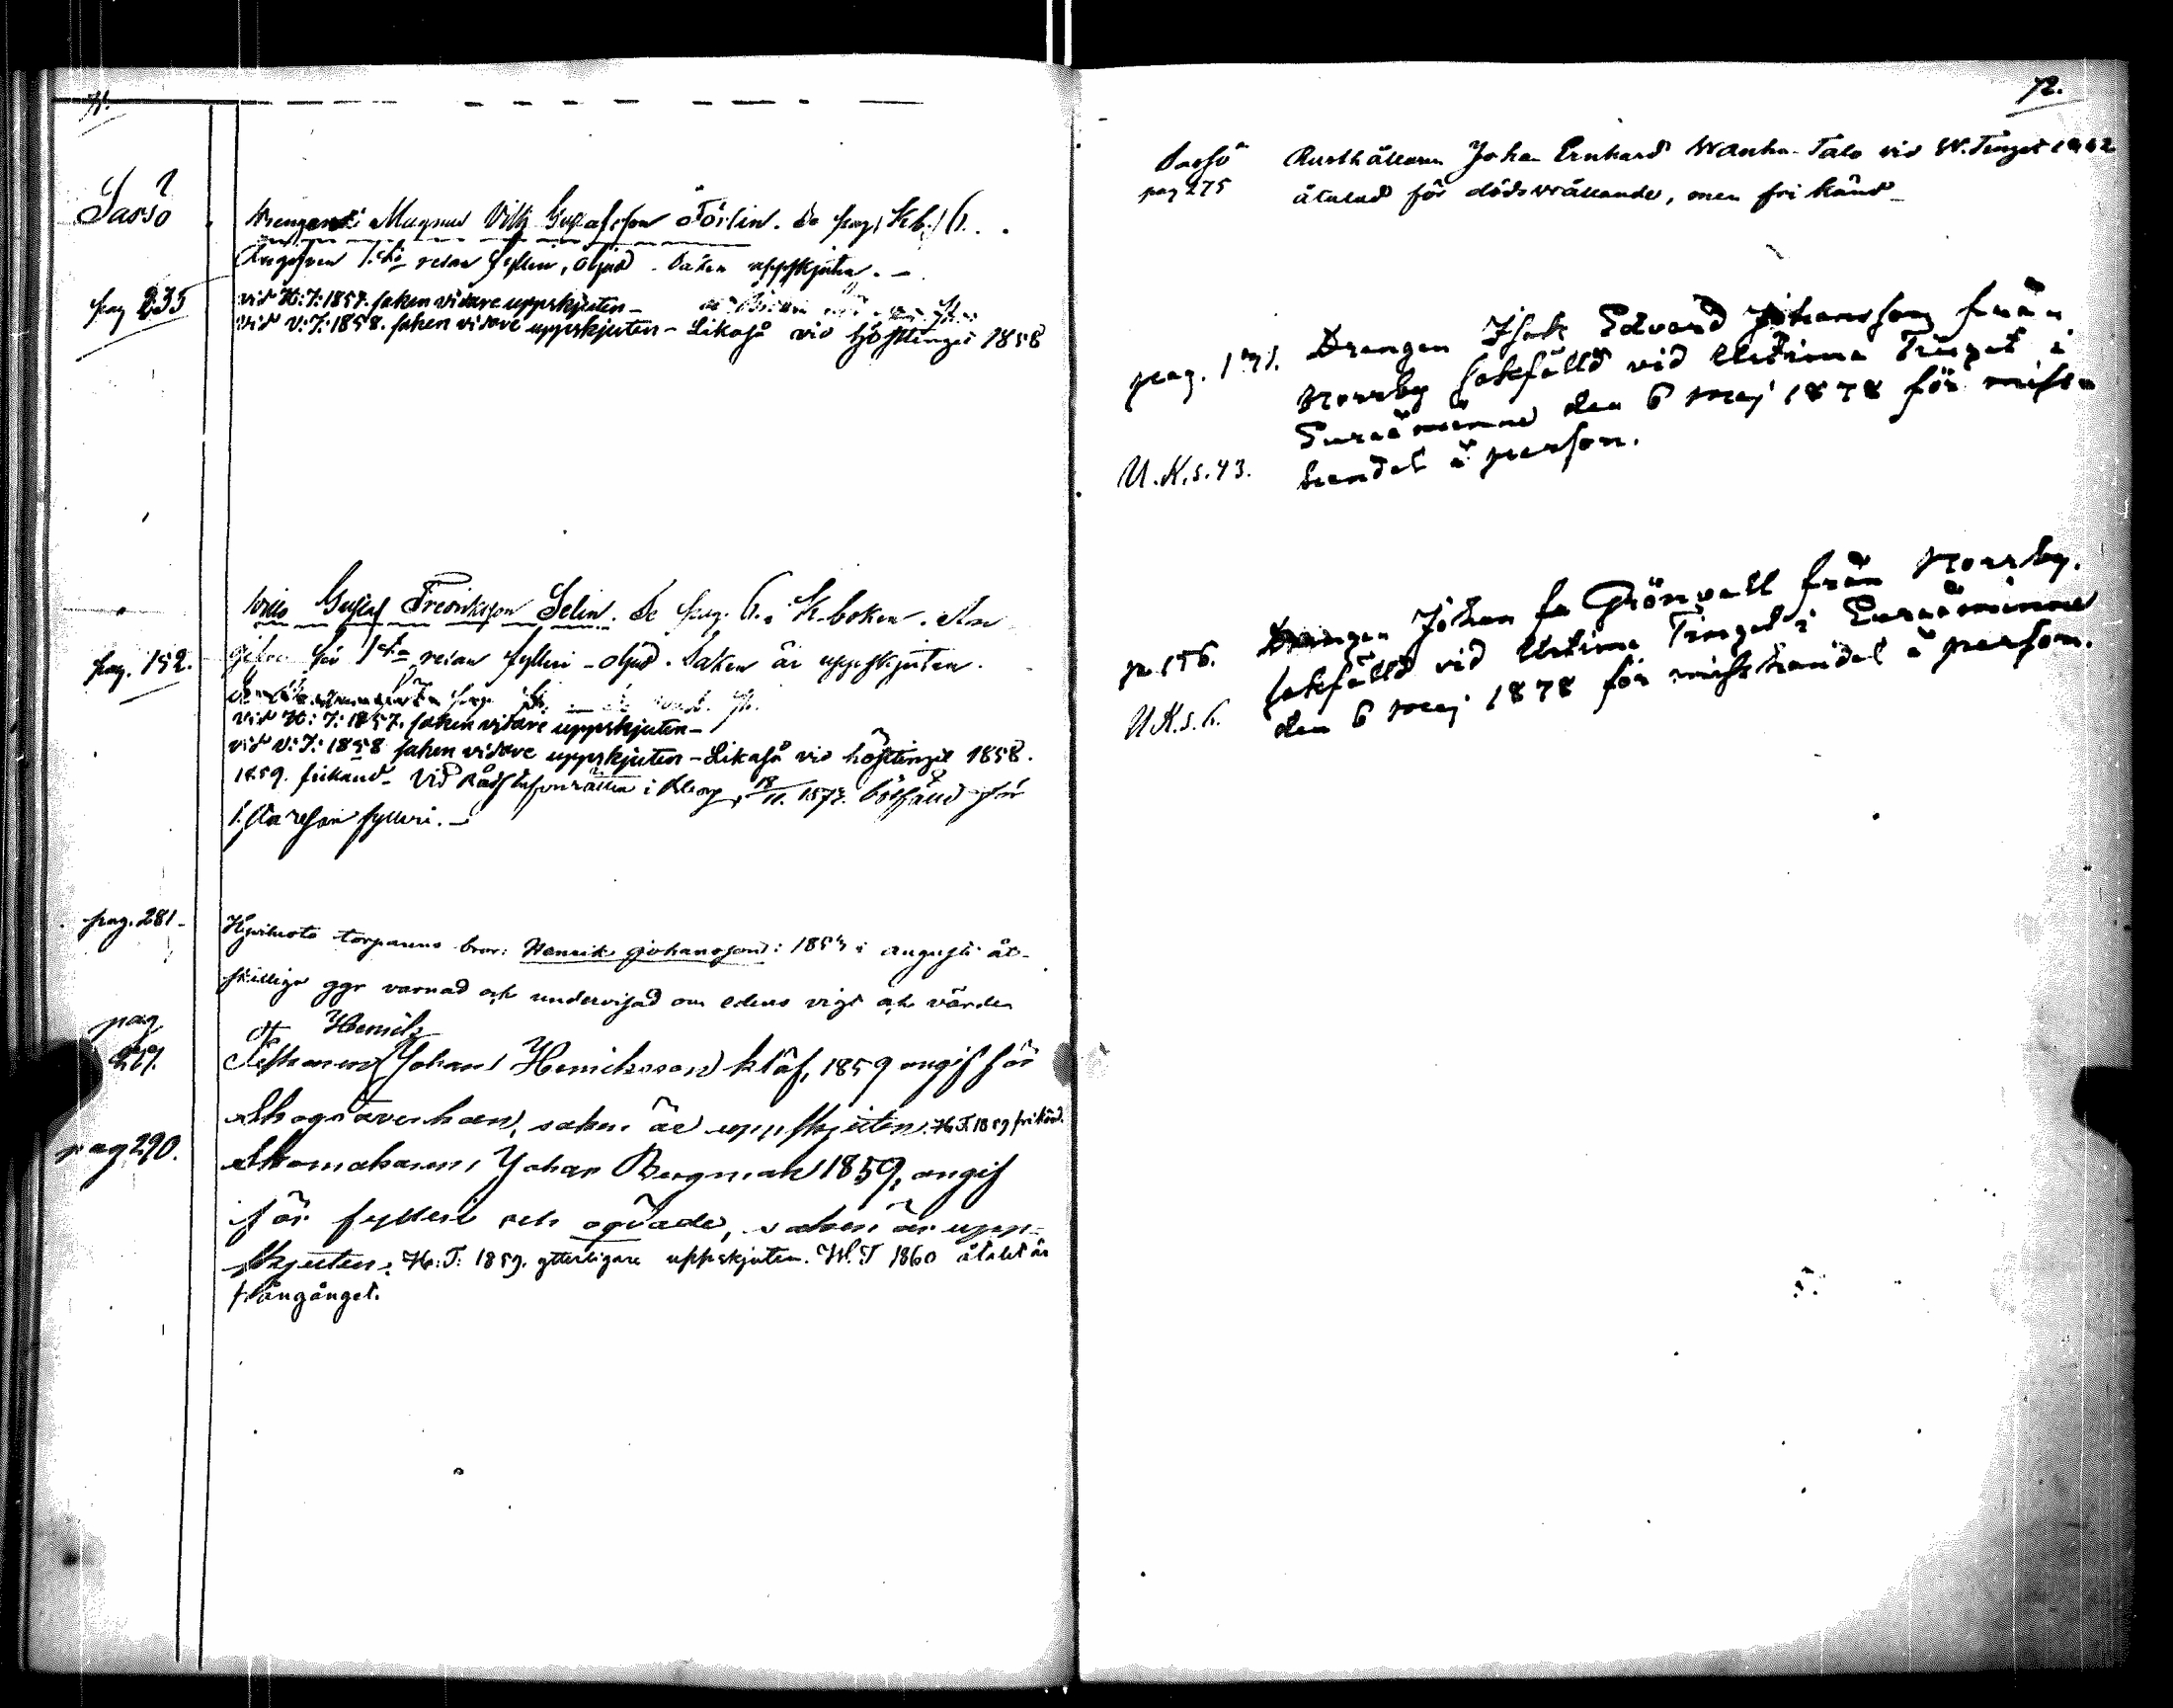 71.
Sarsö
pag 235
Drengen Magnus Vilh Gustafsson Törlin. Se pag. Kb. 6.
Angifven 1sta resan fylleri, oljud. Saken uppskjuten. –
vid H:T:1857. saken vidare uppskjuten –
vid V:T:1858. saken vidare uppskjuten – Likaså vid hösttinget 1858
pag. 152.
Gustaf Fredriksson Selin. Se pag. 6. i K-boken. An
gifven för 1sta resan fylleri – oljud. Saken är uppskjuten.
vid H:T:1857. saken vidare uppskjuten –
vid V:T:1858 saken vidare uppskjuten – Likaså vid hösttinget 1858.
1859. frikänd – Vid Rådstufvurätten i 18/11. 1873. bötfälld för
1:sta resan fylleri. –
pag. 281 –
torparens bror: Henrik Johansson: 1857 i augusti åt-
skilliga ggr varnad och undervisad om edens vigt och värde
pag
227.
Henrik
Johan Henriksson 1859 angif för
Skogsåverkan, saken är uppskjuten. H.T. 1859 frikänd.
pag 290.
Skomakaren Johan Bergman 1859, angif
för fylleri och oqväde, saken är upp-
skjuten. H:T: 1859. ytterligare uppskjuten. W.T 1860 åtalet är
frångånget.
72.
Sarsö
pag 275
Rusthållaren Johan Ernhard Wanha-Talo vid W. Tinget 1862
åtalad för dödsvållande, men frikänd –
pag. 171.
Drengen Isak Edvard Johansson från
Norrby sakfälld vid Urtima Tinget i
Euraåminne den 6 Maj 1878 för miss-
handel å person.
U.K.s.43.
p. 156.
Drengen Johan Grönvall från Norrby.
sakfälld vid Urtima Tinget i Euraåminne
den 6 Maj 1878 för misshandel å person.
U.K.s.6.